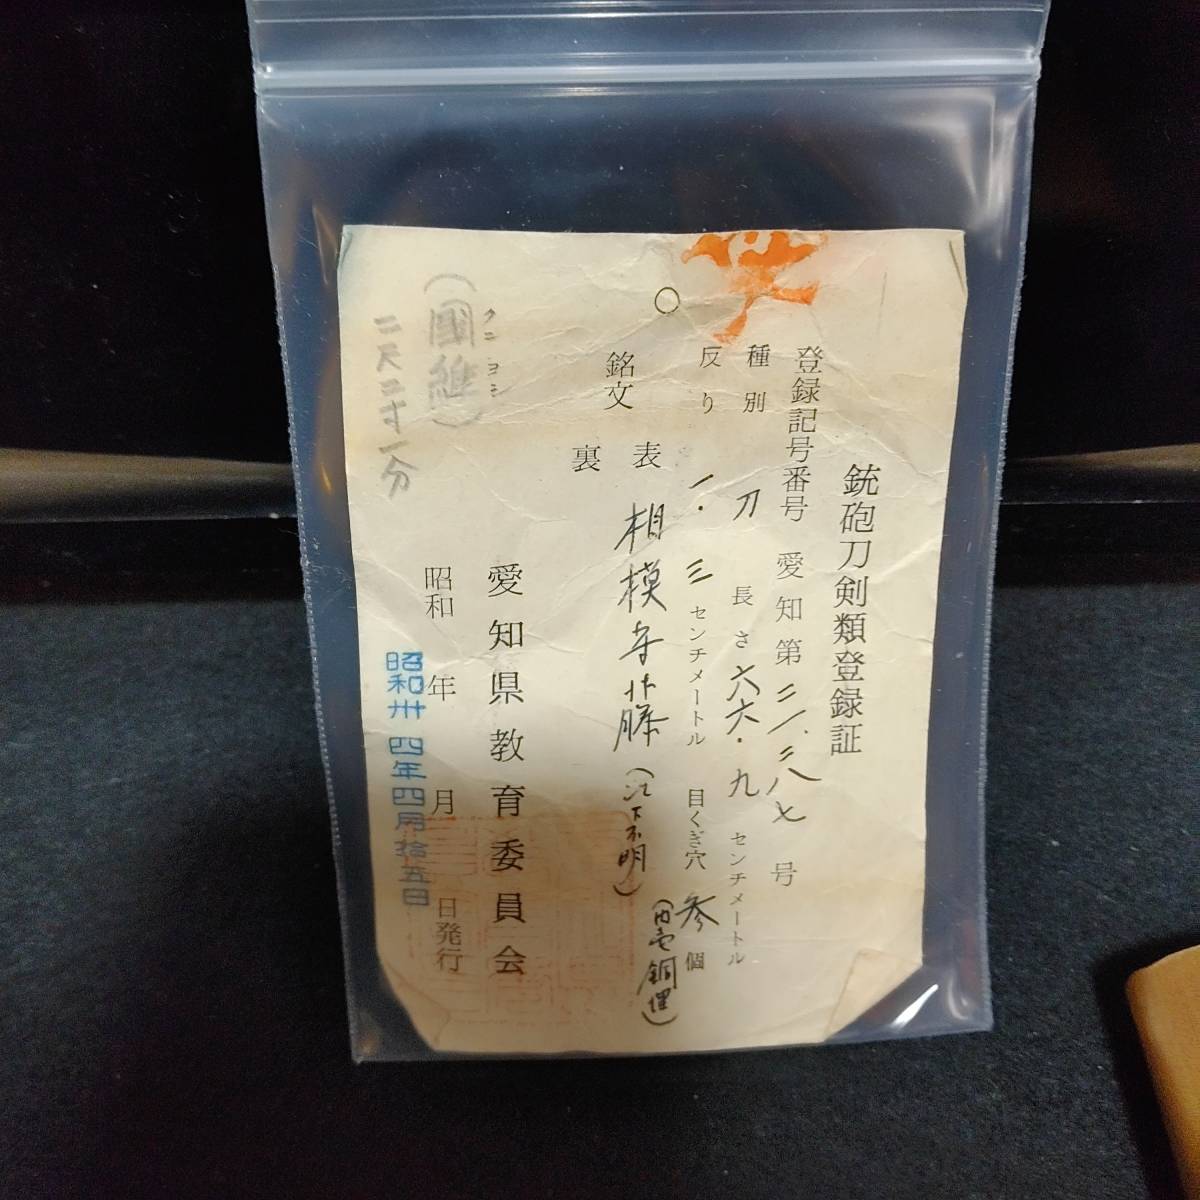 銃砲刀剣類登録証
登録記号番号 愛知第二一二八七号
種別 刀 長さ 六六.九 センチメートル
反り 一.三 センチメートル 目くぎ穴 参 個
(内壱銅埋)
銘文 表 相模守藤(以下不明)
裏
愛知県教育委員会
昭和 年 月 日発行
昭和卅四年四月拾五日
クニ
(國維)
二尺二寸一分